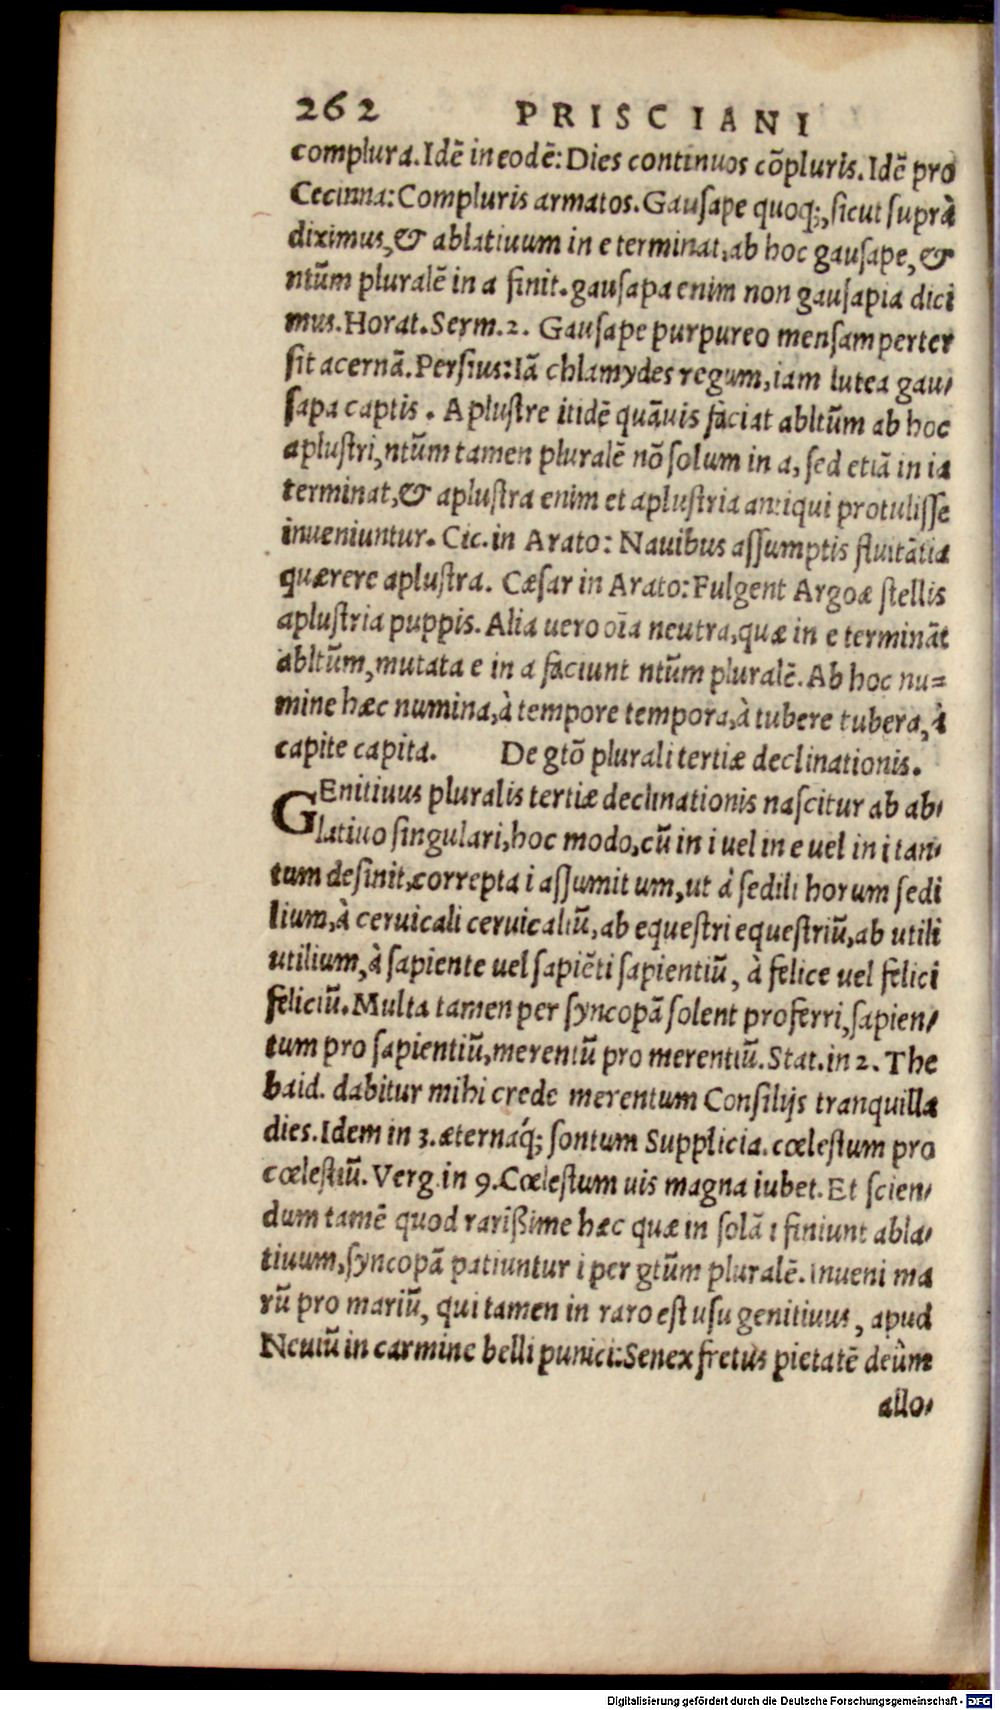 262 PRISCIANI
complura. Idē in eodē: Dies continuos cōpluris. Idē pro
Cecinna: Compluris armatos. Gauſape quoq;, ſicut ſuprà
diximus, & ablatiuum in e terminat, ab hoc gauſape, &
ntūm pluralē in a finit. gauſapa enim non gauſapia dici
mus. Horat. Serm. 2. Gauſape purpureo menſam perter
ſit acernā. Perſius: Iā chlamydes regum, iam lutea gau/
ſapa captis. Apluſtre itidē quāuis faciat abltūm ab hoc
apluſtri, ntūm tamen pluralē nō ſolum in a, ſed etiā in ia
terminat, & apluſtra enim et apluſtria antiqui protuliſſe
inueniuntur. Cic. in Arato: Nauibus aſſumptis fluitātia
quærere apluſtra. Cæſar in Arato: Fulgent Argoæ ſtellis
apluſtria puppis. Alia uero oīa neutra, quæ in e termināt
abltūm, mutata e in a faciunt ntūm pluralē. Ab hoc nu=
mine hæc numina, à tempore tempora, à tubere tubera, à
capite capita. De gtō plurali tertiæ declinationis.
GEnitiuus pluralis tertiæ declinationis naſcitur ab ab/
latiuo ſingulari, hoc modo, cū in i uel in e uel in i tan/
tum deſinit, correpta i aſſumit um, ut à ſedili horum ſedi
lium, à ceruicali ceruicaliū, ab equeſtri equeſtriū, ab utili
utilium, à ſapiente uel ſapiēti ſapientiū, à felice uel felici
feliciū. Multa tamen per ſyncopā ſolent proferri, ſapien/
tum pro ſapientiū, merentū pro merentiū. Stat. in 2. The
baid. dabitur mihi crede merentum Conſilijs tranquilla
dies. Idem in 3. æternaq́; ſontum Supplicia. cœleſtum pro
cœleſtiū. Verg. in 9. Cœleſtum uis magna iubet. Et ſcien/
dum tamē quod rarißime hæc quæ in ſolā i finiunt abla/
tiuum, ſyncopā patiuntur i per gtūm pluralē. Inueni ma
rū pro mariū, qui tamen in raro eſt uſu genitiuus, apud
Neuiū in carmine belli punici: Senex fretus pietatē deûm
allo/
Digitalisierung gefördert durch die Deutsche Forschungsgemeinschaft - DFG